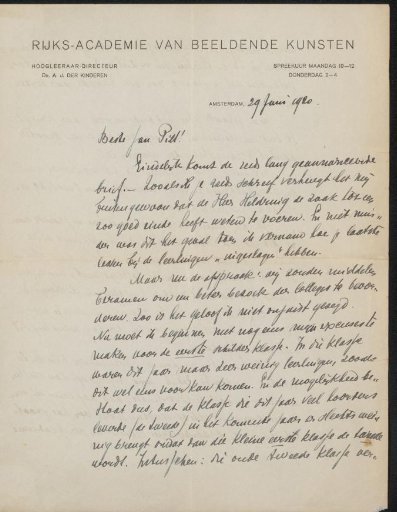 RIJKS-ACADEMIE VAN BEELDENDE KUNSTEN
HOOGLEERAAR-DIRECTEUR SPREEKUUR MAANDAG 10—12
Dr. A. J. DER KINDEREN DONDERDAG 2—4
AMSTERDAM, 29 Juni 1920.
Beste Jan Pitt!
Eindelijk komt de reeds lang geannonceerde
brief. — Zooals ik je reeds schreef verheugt het mij
buitengewoon dat de Heer Heldring de zaak tot een
zoo goed einde heeft weten te voeren. En niet min-
der was dit het geval toen ik vernam hoe je laatste
lessen bij de leerlingen „ingeslagen" hebben.
Maar nu de afspraak: wij zouden middelen
beramen om een beter bezoek der colleges te bevor-
deren. Zoo is het geloof ik niet onjuist gezegd.
Nu moet ik beginnen met nog eens mijn excuses te
maken voor de eerste schilderklasse. In die klasse
waren dit jaar maar zeer weinig leerlingen, zooals
dit wel eens voor kan komen. In de mogelijkheid be-
staat dus, dat de klasse die dit jaar veel hoorders
leverde (de tweede) in het komende jaar er slechts wei-
nig brengt omdat dan die kleine eerste klasse de tweede
wordt. Intusschen: die oude tweede klasse ver-